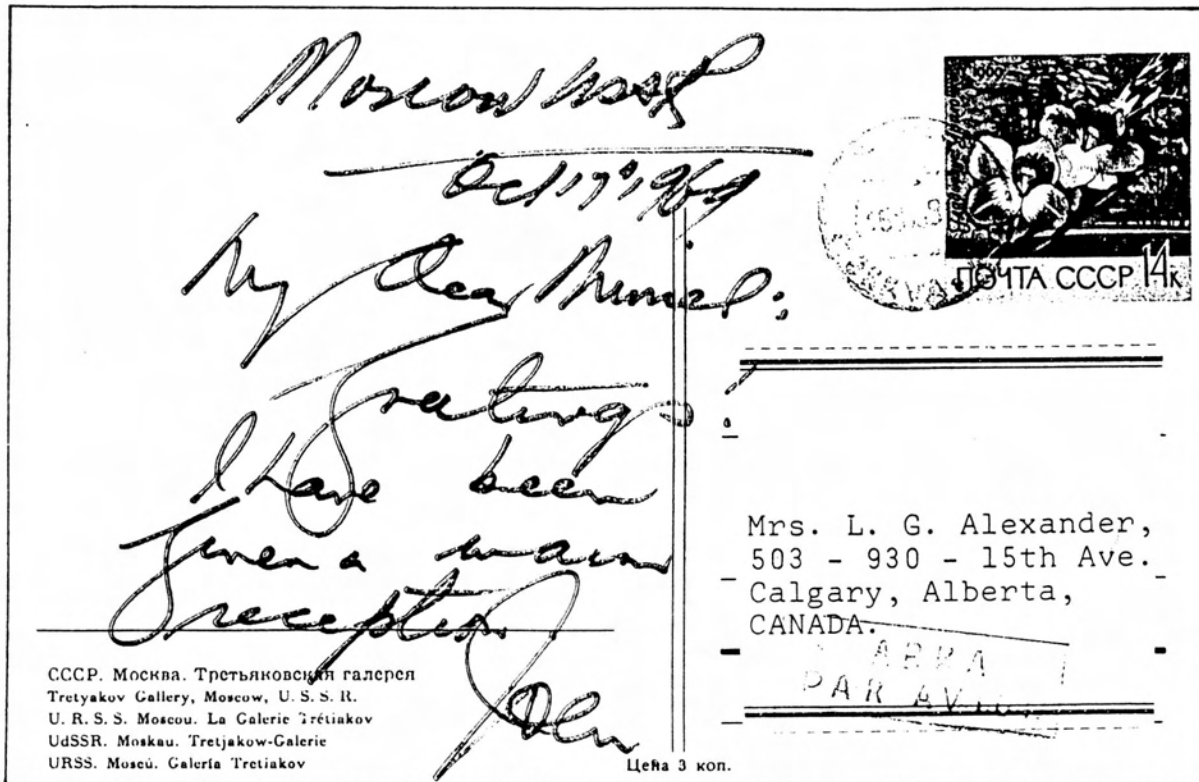 Moscow USSR
Oct 17, 1969
My Dear Muriel:
Greetings
I have been
given a warm
reception
John
ПОЧТА СССР 14к
Mrs. L. G. Alexander,
503 - 930 - 15th Ave.
Calgary, Alberta,
CANADA.
АВИА
PAR AVION
СССР. Москва. Третьяковская галерея
Tretyakov Gallery, Moscow, U. S. S. R.
U. R. S. S. Moscou. La Galerie Trétiakov
UdSSR. Moskau. Tretjakow-Galerie
URSS. Moscú. Galería Tretiakov
Цена 3 коп.